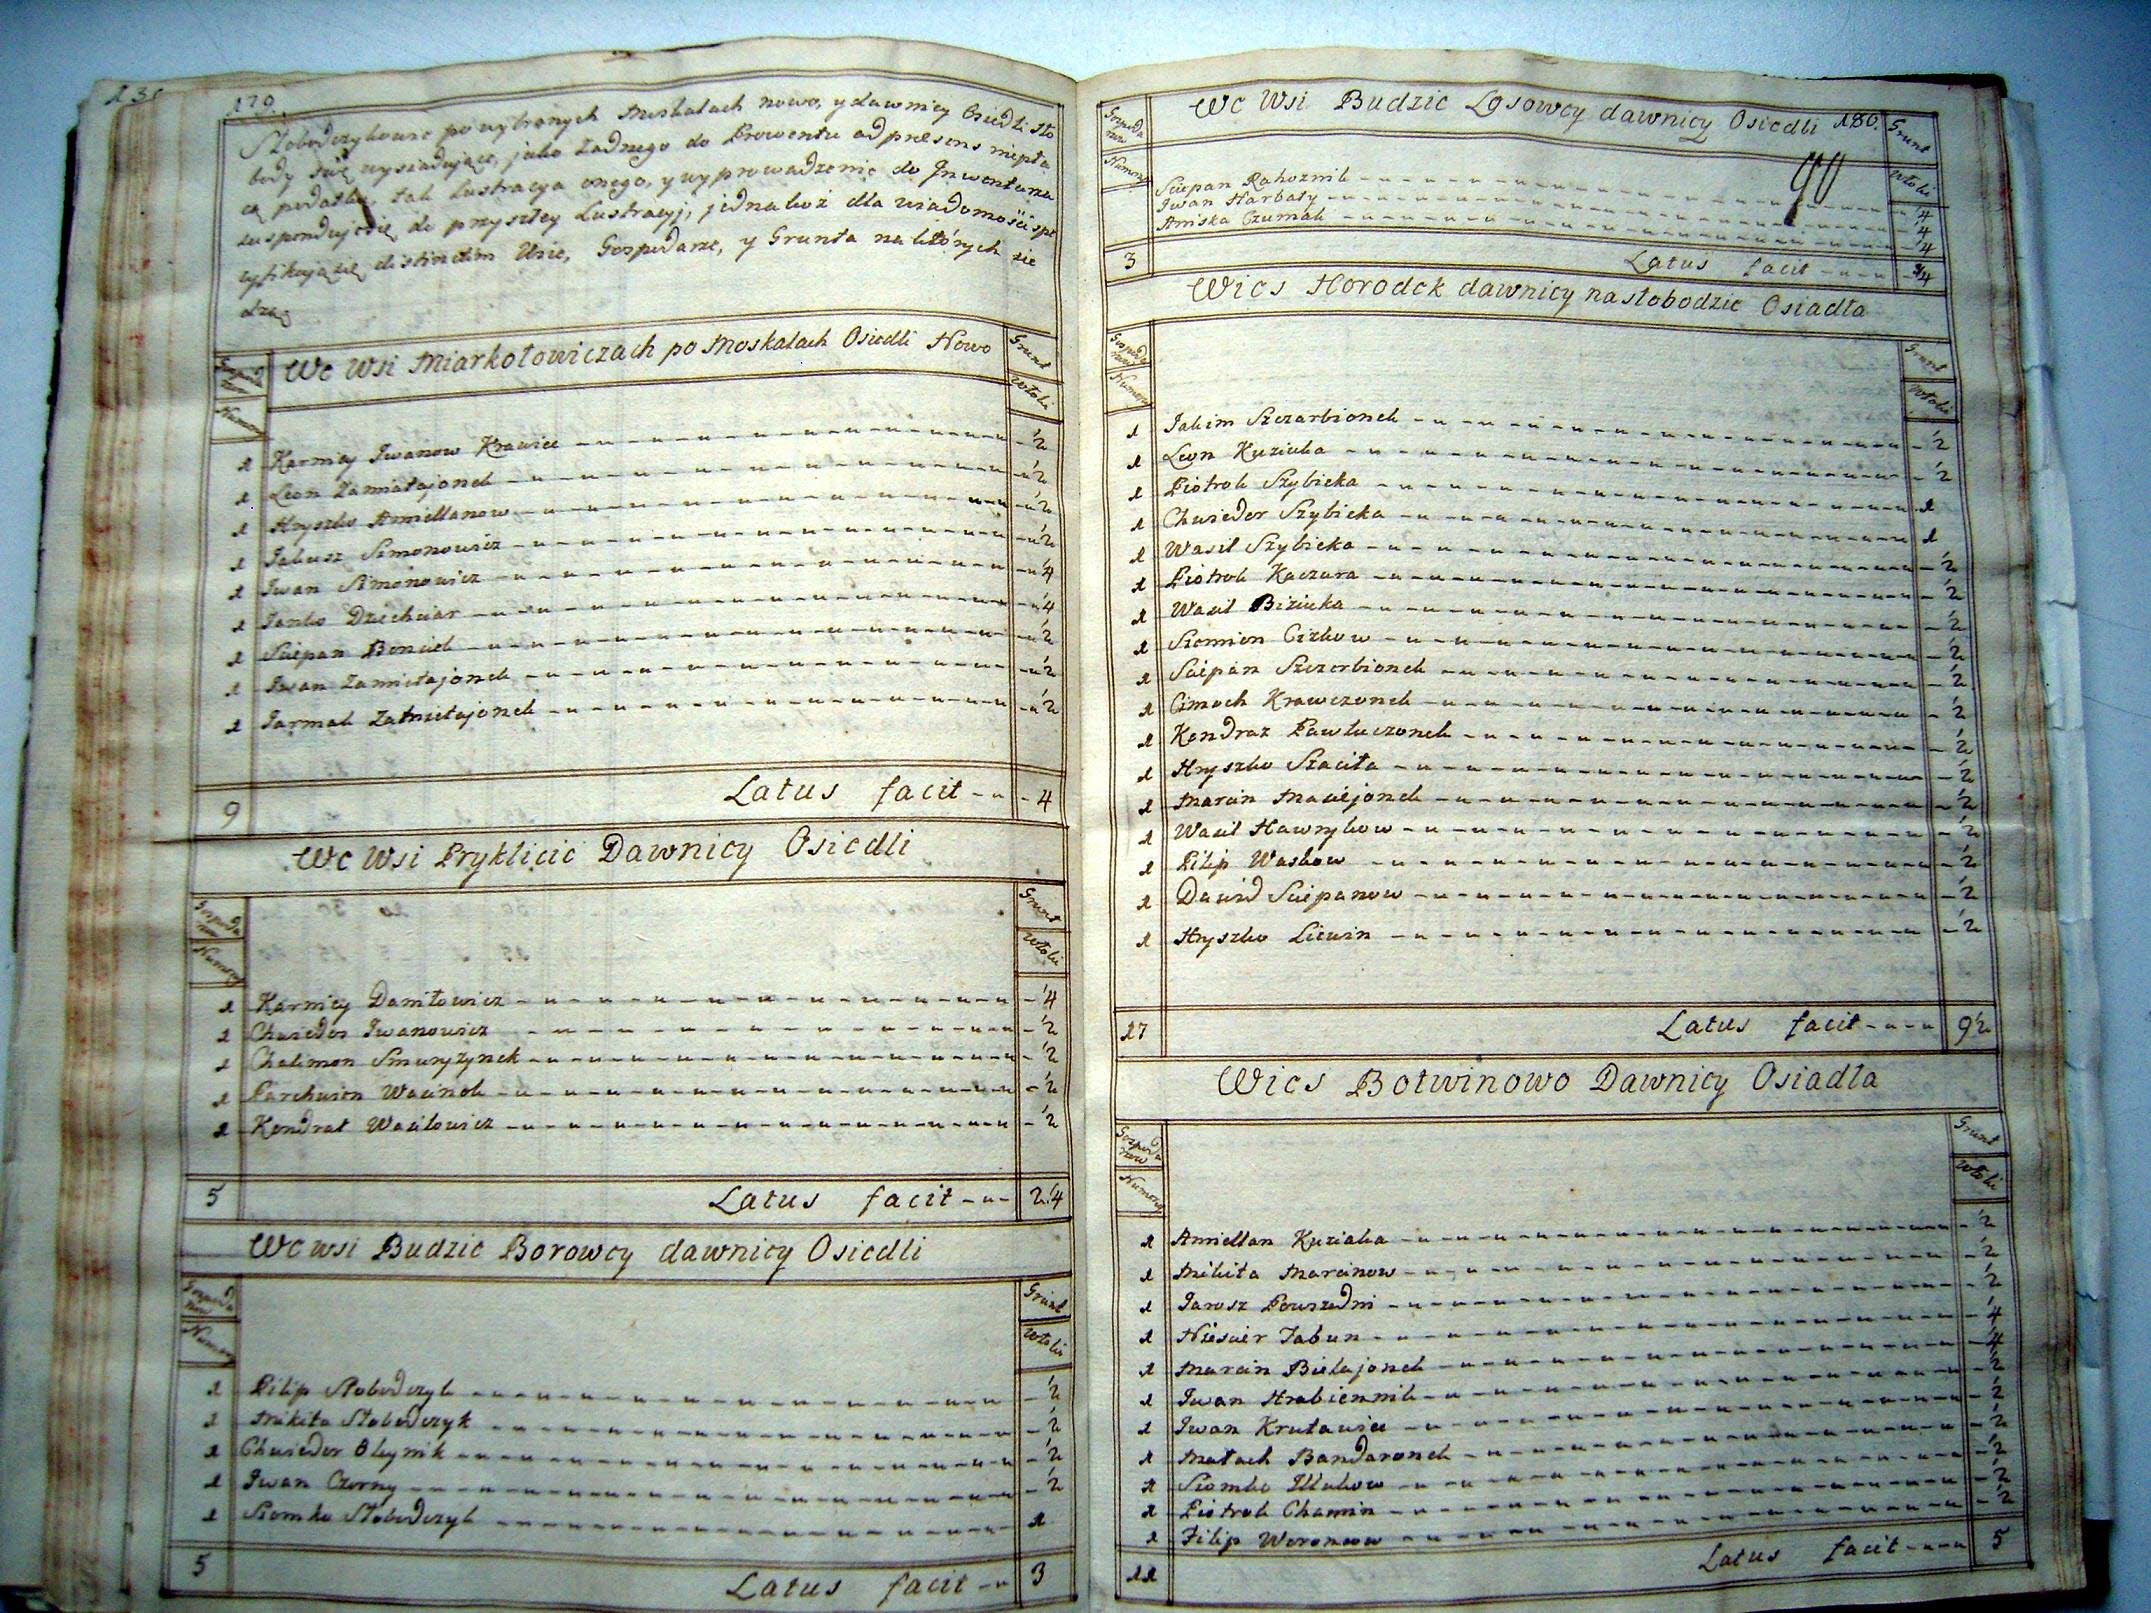 179.
Słobodczykowie po wybranych Moskalach nowo, y dawniey Osiedli Sło
body swe wysiadujące, jako żadnego do Prowentu ad præsens niepła
cą podatku, tak Lustracya onego, y wyprowadzenie do Inwentarza
suspenduje się do przyszłey Lustracyj, jednakoż dla wiadomości spe
cyfikują się distinctim Wsie, Gospodarze, y Grunta na których sie
dzą
Gospoda
rzow
Numery
We Wsi Miarkołowiczach po Moskalach Osiedli Nowo
Grunt
Włoki
1 Karniey Iwanow Krawiec ½
1 Leon Zamiatajonek ½
1 Hryszko Amiellanow ½
1 Jakusz Simonowicz ½
1 Iwan Simonowicz ¼
1 Janko Dziechciar ¼
1 Sciepan Bonciek ½
1 Iwan Zamiatajonek ½
1 Jarmak Zatmietajonek ½
9 Latus facit 4
We Wsi Pryklicie Dawniey Osiedli
Gospoda
rzow
Numery
Grunt
Włoki
1 Karniey Daniłowicz ¼
1 Chwiedor Iwanowicz ½
1 Chalimon Smuryzynek ½
1 Parchwien Wacinok ½
1 Kondrat Wasilowicz ½
5 Latus facit 2 ¼
We wsi Budzie Borowcy dawniey Osiedli
Gospoda
rzow
Numery
Grunt
Włoki
1 Pilip Słobodczyk ½
1 Mikita Słobodczyk ½
1 Chwiedor Oleynik ½
1 Iwan Czorny ½
1 Siomko Słobodczyk 1
5 Latus facit 3
We Wsi Budzie Łosowcy dawniey Osiedli 180.
Gospoda
rzow
Numery
Grunt
Włoki
90
Sciepan Rahoznik ¼
Iwan Harbaty ¼
Amiska Czumak ¼
3 Latus facit ¾
Wies Horodek dawniey na słobodzie Osiadła
Gospoda
rzow
Numery
Grunt
Włoki
1 Jakim Szczarbionek ½
1 Leon Kuziuka ½
1 Piotrok Szybieka 1
1 Chwiedor Szybieka 1
1 Wasil Szybieka ½
1 Piotrok Kaczura ½
1 Wasil Biziuka ½
1 Siomion Cizkow ½
1 Sciepan Szczerbionek ½
1 Cimoch Krawczonek ½
1 Kondraz Pawluczonek ½
1 Hryszko Szaciła ½
1 Marcin Maciejonek ½
1 Wasil Hawrykow ½
1 Pilip Waskow ½
1 Dawid Sciepanow ½
1 Hryszko Litwin ½
17 Latus facit 9½
Wies Botwinowo Dawniey Osiadła
Gospoda
rzow
Numery
Grunt
Włoki
1 Amiellan Kuziuka ½
1 Mikita Marcinow ½
1 Jarosz Powszedni ½
1 Niescier Jakun ¼
1 Marcin Bielajonek ¼
1 Iwan Hrabiennik ½
1 Iwan Krutawiec ½
1 Małach Bandaronek ½
1 Siomko Illukow ½
1 Piotrok Chamin ½
1 Filip Woronow ½
11 Latus facit 5